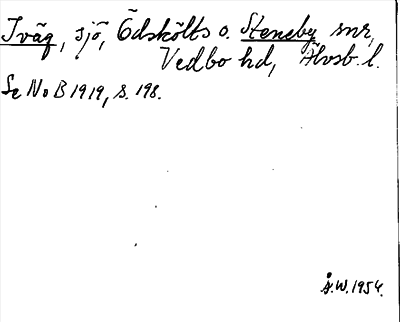 Iväg, sjö, Ödskölts o. Steneby snr,
Vedbo hd, Älvsb. l.
Se NoB 1919, s. 198.
Å.W. 1954.